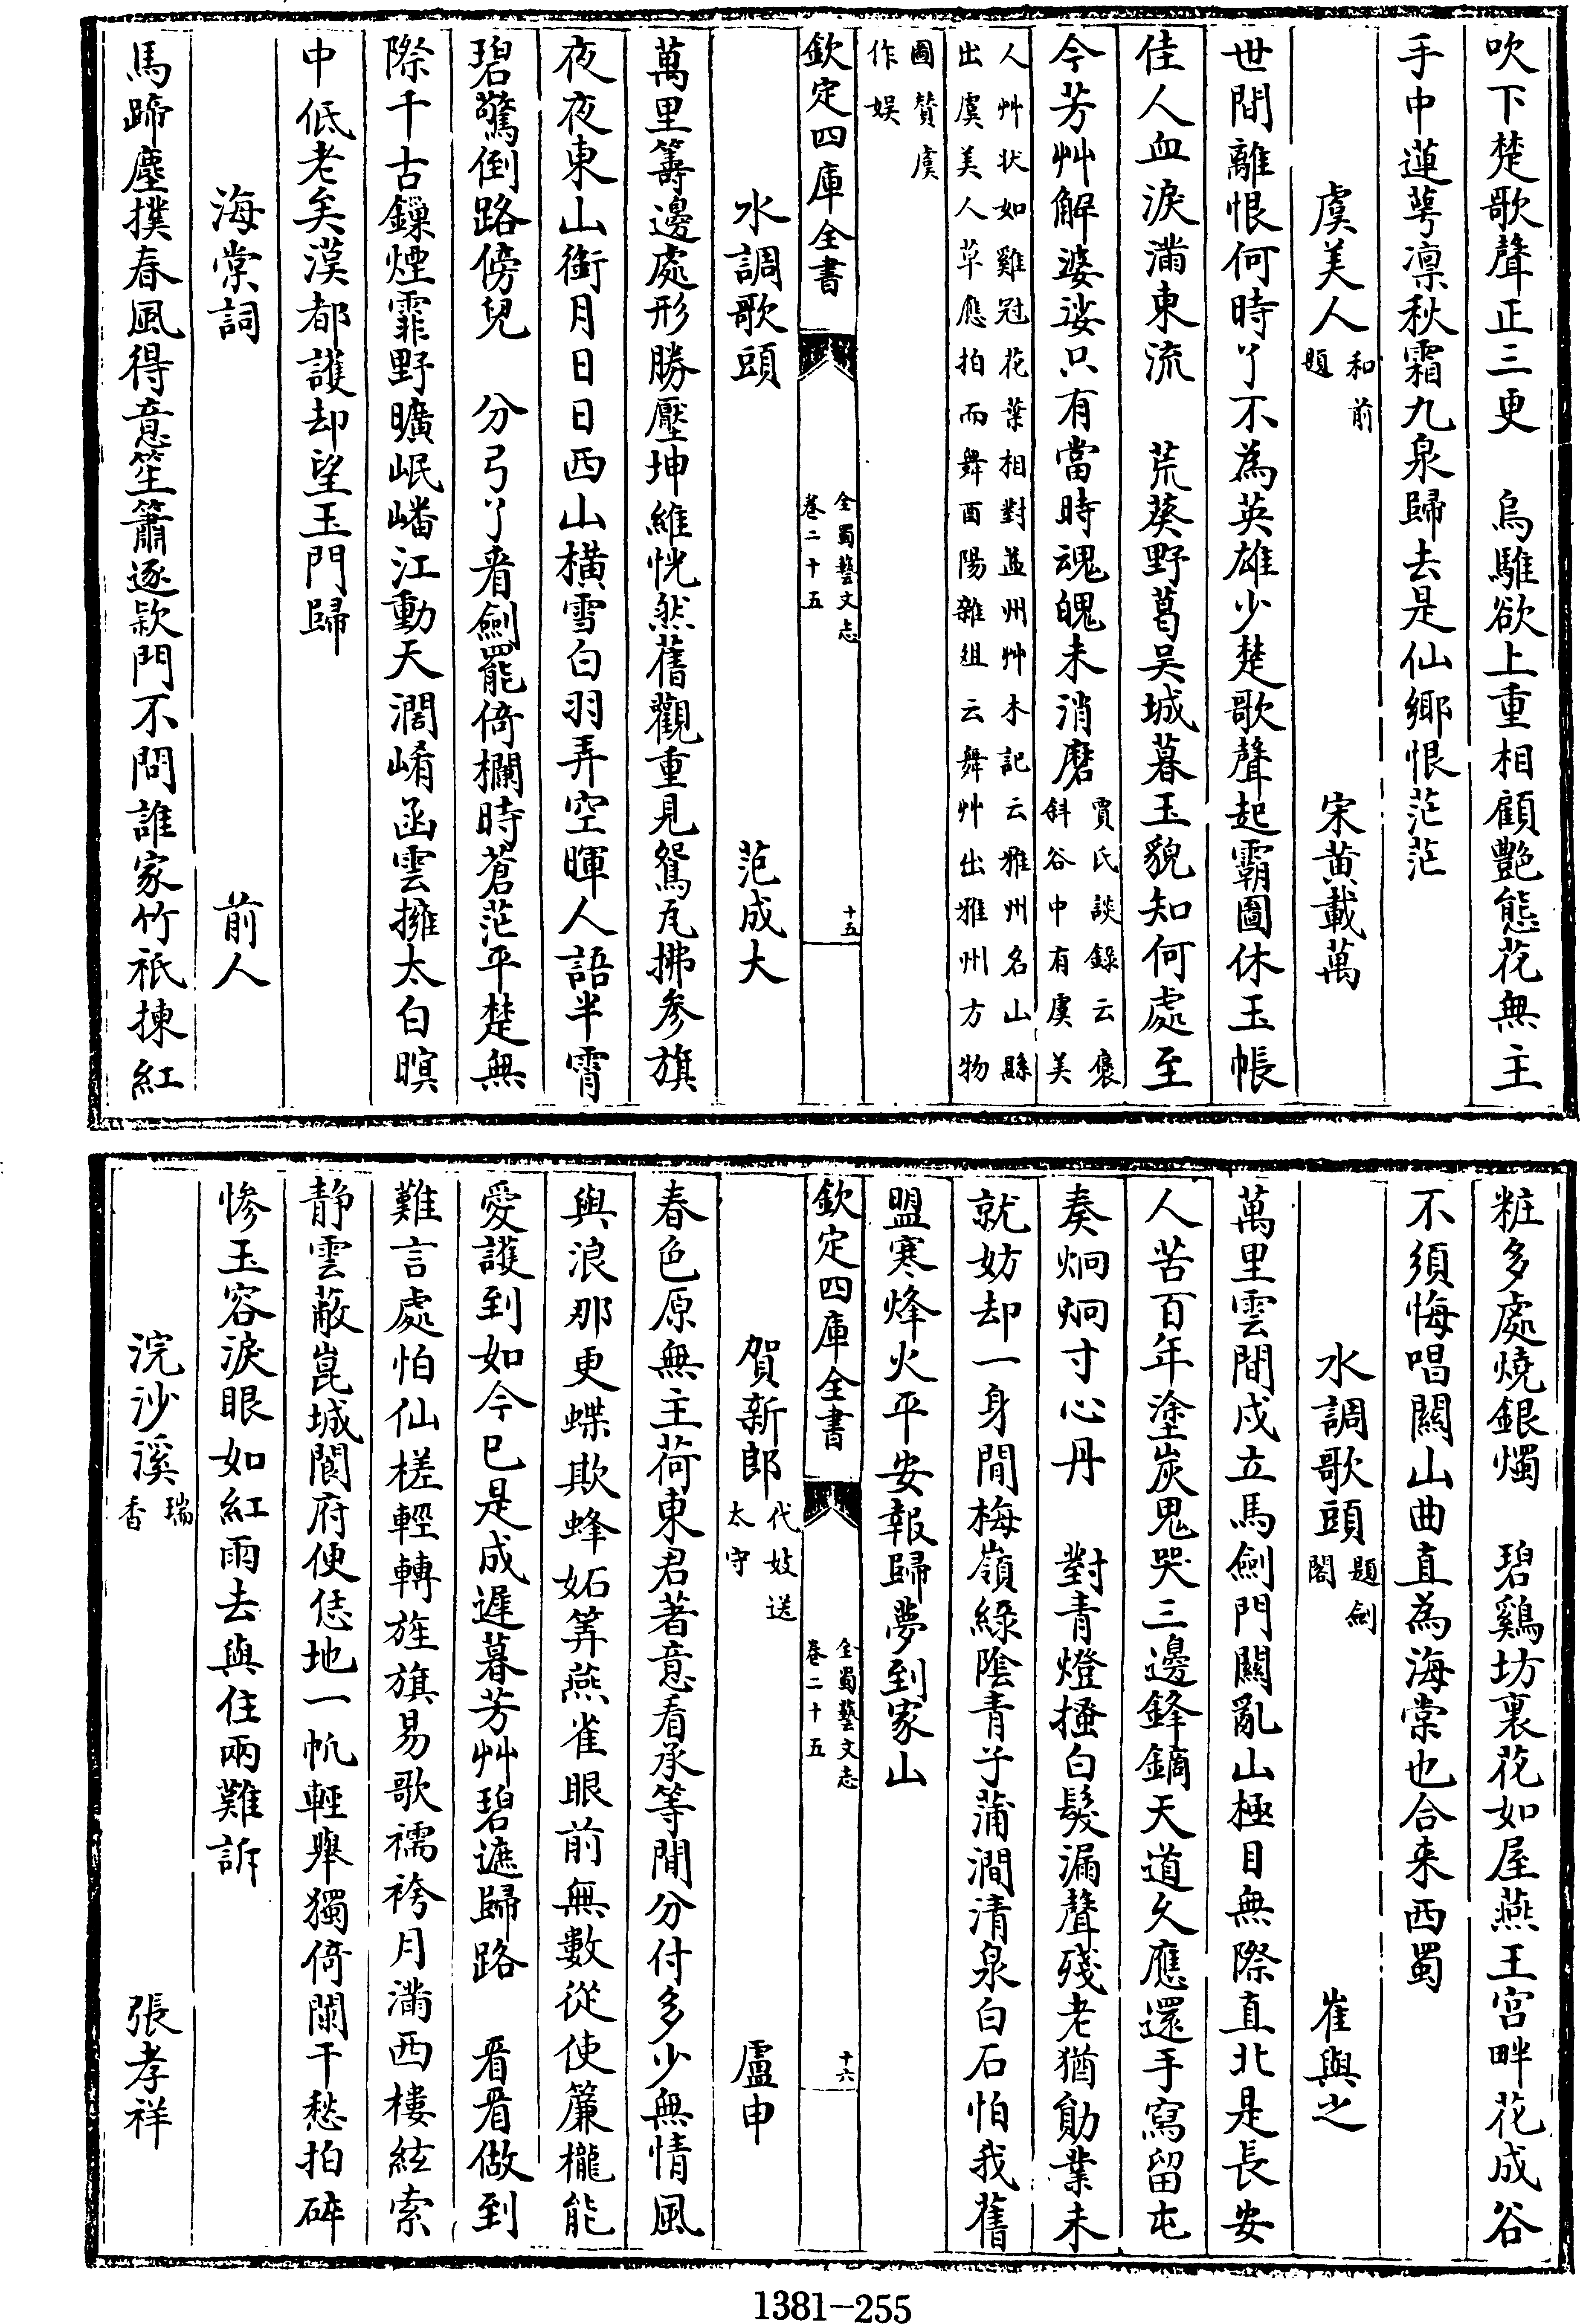 吹下楚歌聲正三更　烏騅欲上重相顧艷態花無主
手中蓮萼凛秋霜九泉歸去是仙鄉恨茫茫
虞美人和前題　宋黃載萬
世間離恨何時了不為英雄少楚歌聲起霸圖休玉帳
佳人血淚滿東流　荒葵野葛吴城暮玉貌知何處至
今芳艸解婆娑只有當時魂魄未消磨賈氏談錄云褒斜谷中有虞美
人艸狀如雞冠花葉相對益州艸木記云雅州名山縣
出虞美人草應拍而舞酉陽雜俎云舞艸出雅州方物
圖贊虞
作娱
欽定四庫全書　全蜀藝文志卷二十五　十五
水調歌頭　范成大
萬里籌邊處形勝壓坤維恍然舊觀重見鴛瓦拂參旗
夜夜東山銜月日日西山橫雪白羽弄空暉人語半霄
碧驚倒路傍兒　分弓了看劍罷倚欄時蒼茫平楚無
際千古鏁煙霏野曠岷嶓江動天濶崤函雲擁太白暝
中低老矣漢都護却望玉門歸
海棠詞　前人
馬蹄塵撲春風得意笙簫逐欵門不問誰家竹祇揀紅
粧多處燒銀燭　碧鷄坊裏花如屋燕王宫畔花成谷
不須悔唱關山曲直為海棠也合来西蜀
水調歌頭題劍閣　崔與之
萬里雲間戍立馬劍門關亂山極目無際直北是長安
人苦百年塗炭鬼哭三邊鋒鏑天道久應還手寫留屯
奏炯炯寸心丹　對青燈搔白髮漏聲殘老猶勛業未
就妨却一身閒梅嶺綠陰青子蒲澗清泉白石怕我舊
盟寒烽火平安報歸夢到家山
欽定四庫全書　全蜀藝文志卷二十五　十六
賀新郎代妓送太守　盧申
春色原無主荷東君著意看承等閒分付多少無情風
與浪那更蝶欺蜂妬筭燕雀眼前無數從使簾櫳能
愛護到如今已是成遲暮芳艸碧遮歸路　看看做到
難言處怕仙槎輕轉旌旗易歌襦袴月滿西樓絃索
静雲蔽崑城閬府便恁地一帆輕舉獨倚闌干愁拍碎
慘玉容淚眼如紅雨去與住兩難訴
浣沙溪瑞香　張孝祥
1381-255